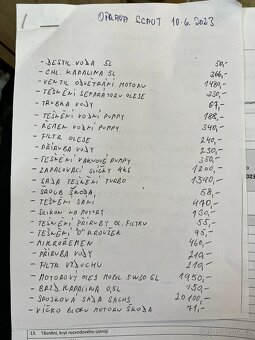 OPRAVA SCOUT 10.6.2023
- DESTIL VODA 5L 50,-
- CHL. KAPALINA 5L 366,-
- VENTIL ODVĚTRÁNÍ MOTORU 1480,-
- TĚSNĚNÍ SEPARÁTORU OLEJE 230,-
- TRUBKA VODY 67,-
- TĚSNĚNÍ VODNÍ PUMPY 188,-
- ŘEMEN VODNÍ PUMPY 340,-
- FILTR OLEJE 240,-
- PŘÍRUBA VODY 230,-
- TĚSNĚNÍ VAKUOVÉ PUMPY 350,-
- ZAPALOVACÍ SVÍČKY 4KS 1200,-
- SADA TĚSNĚNÍ TURBO 1340,-
- ŠROUB ŠKODA 58,-
- TĚSNĚNÍ SÁNÍ 470,-
- SILIKON NA MOTORY 130,-
- TĚSNĚNÍ PŘÍRUBY OL. FILTRU 55,-
- TĚSNĚNÍ "O" KROUŽEK 95,-
- MIKROŘEMEN 460,-
- PŘÍRUBA VODY 210,-
- FILTR VZDUCHU 210,-
- MOTOROVÝ OLEJ MOBIL 5W30 6L 1950,-
- BRZD. KAPALINA 0,5L 150,-
- SPOJKOVÁ SADA SACHS 20100,-
- VÍČKO BLOKU MOTORU ŠKODA 71,-
13. Těsnění, kryt rozvodového ústrojí